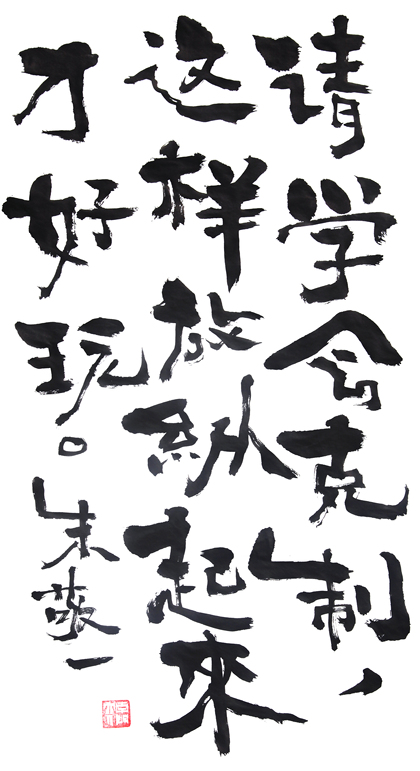 请学会克制，
这样放纵起來
才好玩。朱敬一